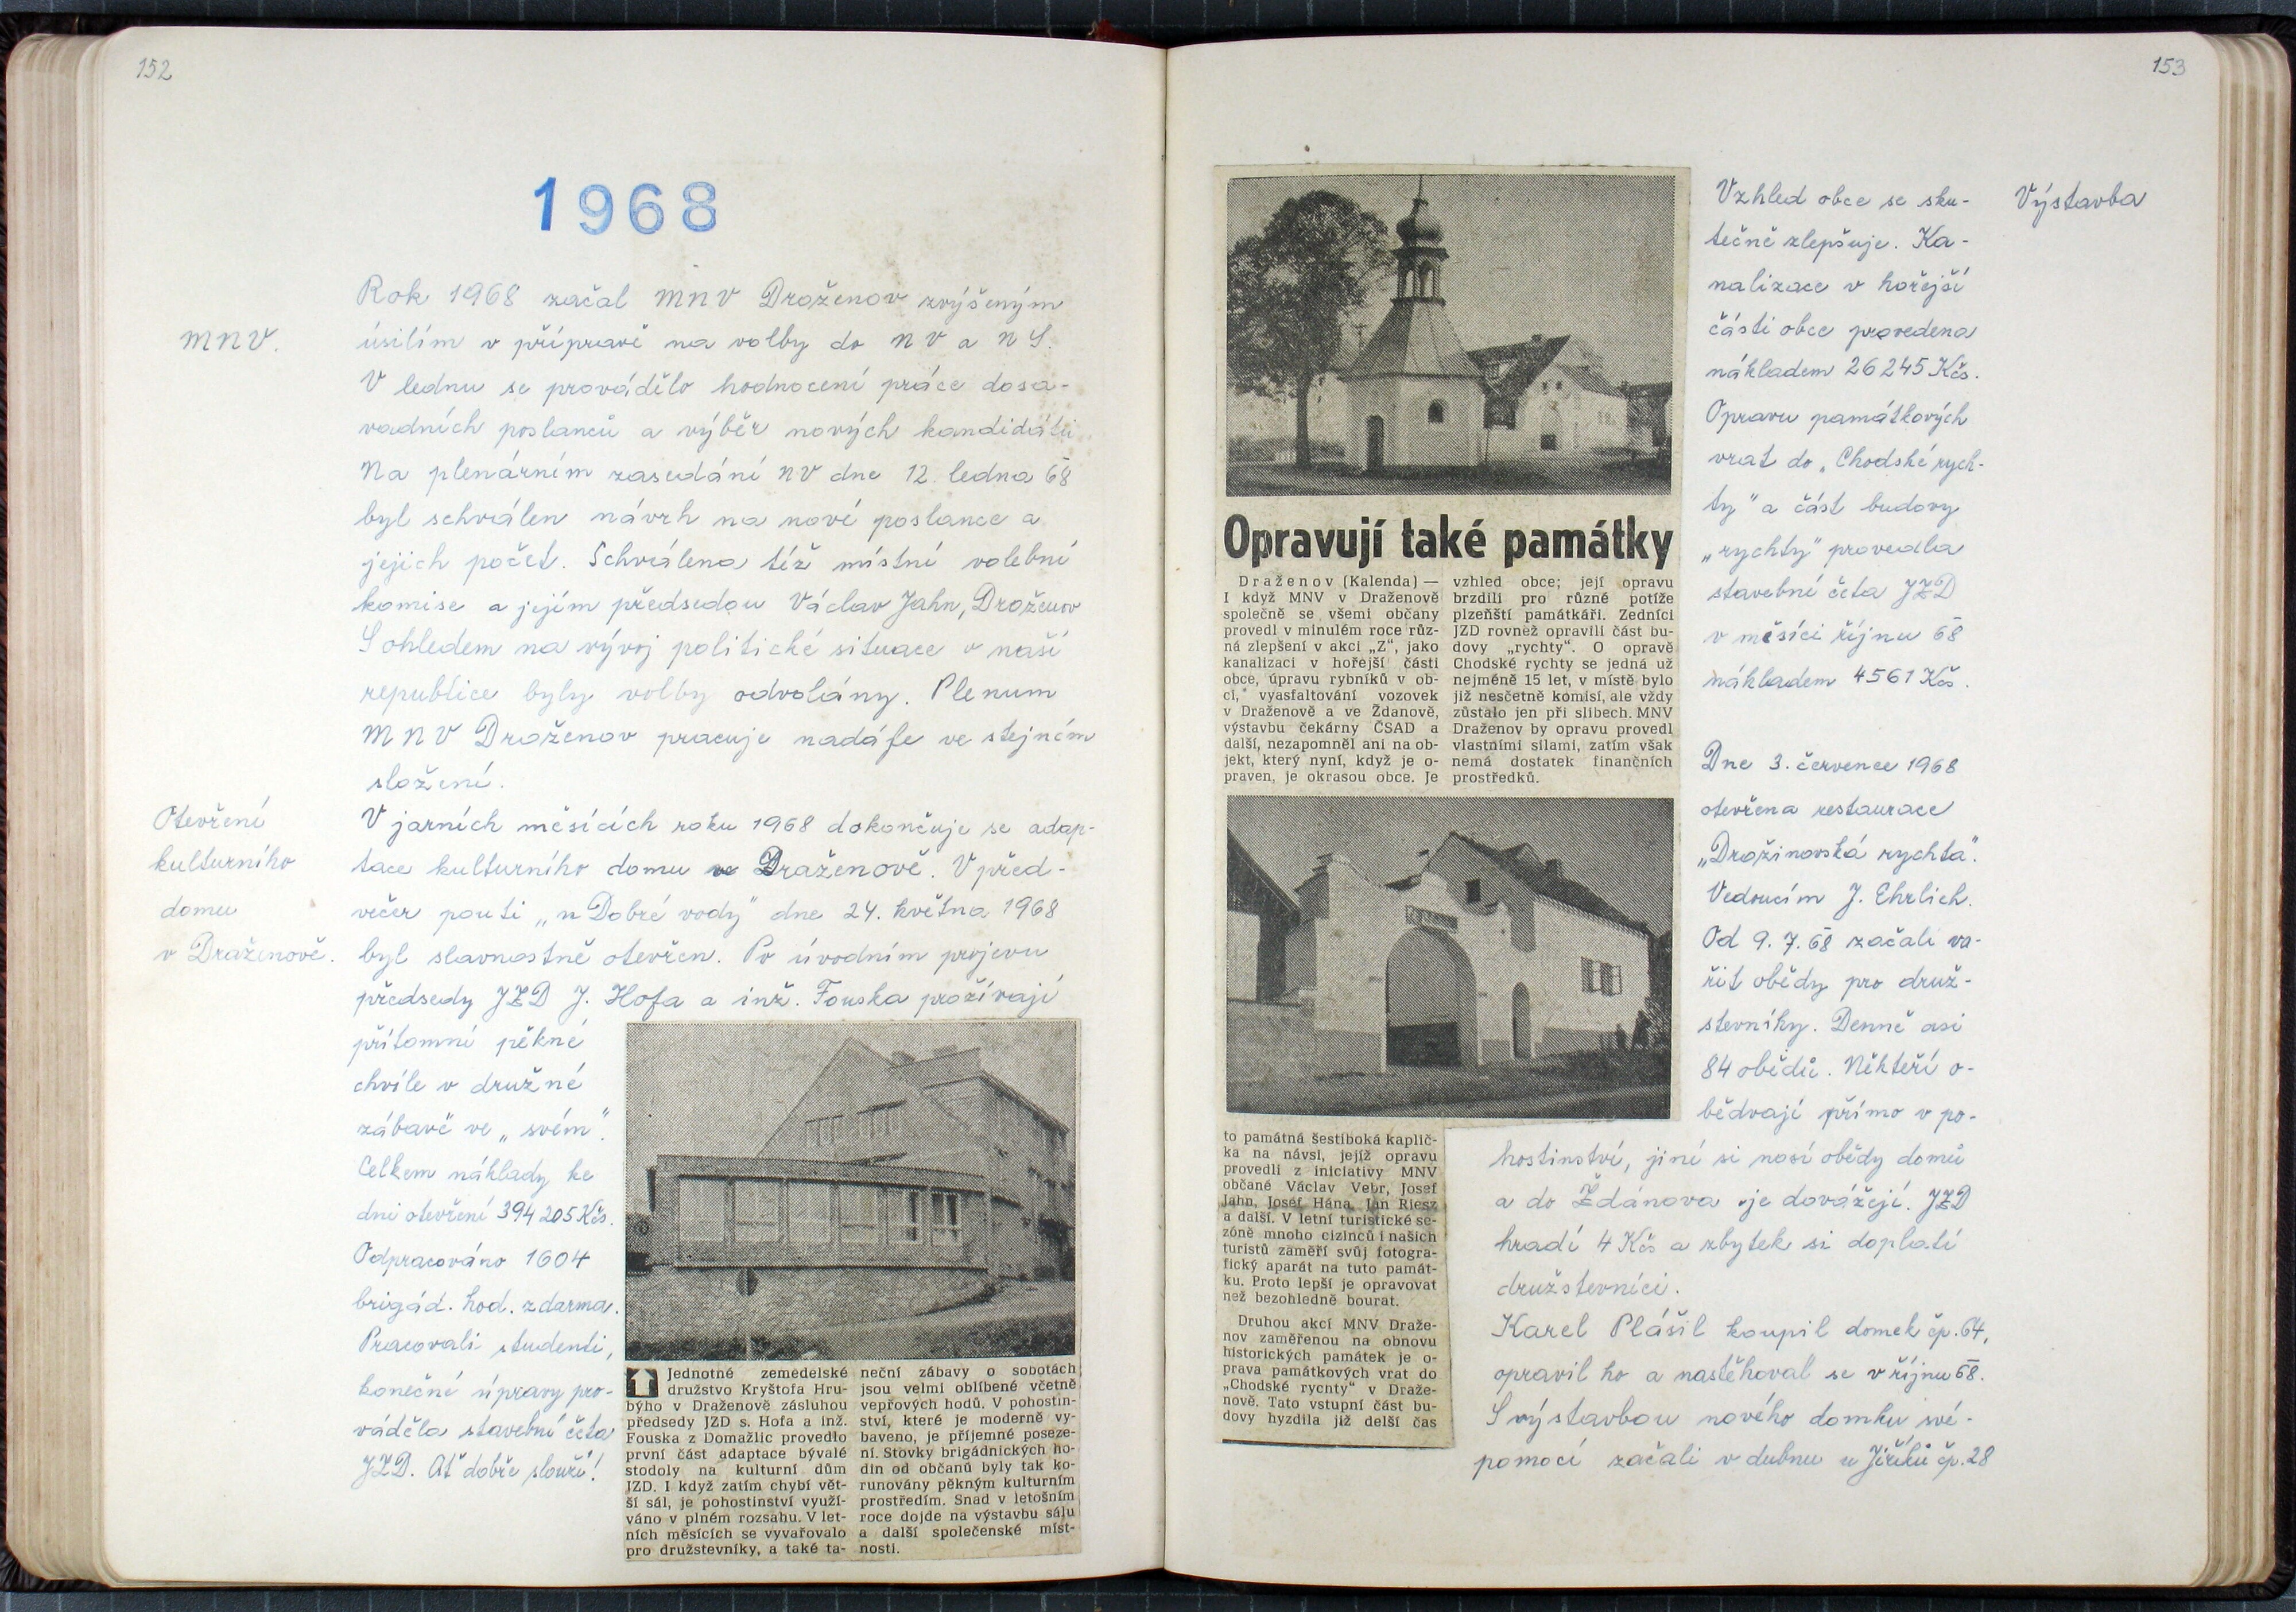 152
1968
MNV.
Rok 1968 začal MNV Draženov zvýšeným
úsilím v přípravě na volby do NV a NS.
V lednu se provádělo hodnocení práce dosa-
vadních poslanců a výběr nových kandidátů
Na plenárním zasedání NV dne 12. ledna 68
byl schválen návrh na nové poslance a
jejich počet. Schválena též místní volební
komise a jejím předsedou Václav Jahn, Draženov
S ohledem na vývoj politické situace v naší
republice byly volby odvolány. Plenum
MNV Draženov pracuje nadále ve stejném
složení.
Otevření
kulturního
domu
v Draženově.
V jarních měsících roku 1968 dokončuje se adap-
tace kulturního domu ve Draženově. V před-
večer pouti „u Dobré vody" dne 24. května 1968
byl slavnostně otevřen. Po úvodním projevu
předsedy JZD J. Hofa a inž. Fouska prožívají
přítomní pěkné
chvíle v družné
zábavě ve „svém".
Celkem náklady ke
dni otevření 394 205 Kčs.
Odpracováno 1604
brigád. hod. zdarma.
Pracovali studenti,
konečné úpravy pro-
váděla stavební četa
JZD. Ať dobře slouží!
Jednotné zemědelské
družstvo Kryštofa Hru-
býho v Draženově zásluhou
předsedy JZD s. Hofa a inž.
Fouska z Domažlic provedlo
první část adaptace bývalé
stodoly na kulturní dům
JZD. I když zatím chybí vět-
ší sál, je pohostinství využí-
váno v plném rozsahu. V let-
ních měsících se vyvařovalo
pro družstevníky, a také ta-
neční zábavy o sobotách
jsou velmi oblíbené včetně
vepřových hodů. V pohostin-
ství, které je moderně vy-
baveno, je příjemné poseze-
ní. Stovky brigádnických ho-
din od občanů byly tak ko-
runovány pěkným kulturním
prostředím. Snad v letošním
roce dojde na výstavbu sálu
a další společenské míst-
nosti.
153
Opravují také památky
Draženov (Kalenda) —
I když MNV v Draženově
společně se všemi občany
provedl v minulém roce růz-
ná zlepšení v akci „Z", jako
kanalizaci v hořejší části
obce, úpravu rybníků v ob-
ci, vyasfaltování vozovek
v Draženově a ve Ždanově,
výstavbu čekárny ČSAD a
další, nezapomněl ani na ob-
jekt, který nyní, když je o-
praven, je okrasou obce. Je
vzhled obce; její opravu
brzdili pro různé potíže
plzeňští památkáři. Zedníci
JZD rovněž opravili část bu-
dovy „rychty". O opravě
Chodské rychty se jedná už
nejméně 15 let, v místě bylo
již nesčetně komisí, ale vždy
zůstalo jen při slibech. MNV
Draženov by opravu provedl
vlastními silami, zatím však
nemá dostatek finančních
prostředků.
to památná šestiboká kaplič-
ka na návsi, jejíž opravu
provedli z iniciativy MNV
občané Václav Vebr, Josef
Jahn, Josef Hána, Jan Riesz
a další. V letní turistické se-
zóně mnoho cizinců i našich
turistů zaměří svůj fotogra-
fický aparát na tuto památ-
ku. Proto lepší je opravovat
než bezohledně bourat.
Druhou akcí MNV Draže-
nov zaměřenou na obnovu
historických památek je o-
prava památkových vrat do
„Chodské rychty" v Draže-
nově. Tato vstupní část bu-
dovy hyzdila již delší čas
Výstavba
Vzhled obce se sku-
tečně zlepšuje. Ka-
nalizace v hořejší
části obce provedena
nákladem 26 245 Kčs.
Opravu památkových
vrat do „Chodské rych-
ty" a část budovy
„rychty" provedla
stavební četa JZD
v měsíci říjnu 68
nákladem 4561 Kčs.
Dne 3. července 1968
otevřena restaurace
„Dražinovská rychta".
Vedoucím J. Ehrlich.
Od 9. 7. 68 začali va-
řit obědy pro druž-
stevníky. Denně asi
84 obědů. Někteří o-
bědvají přímo v po-
hostinství, jiní si nosí obědy domů
a do Ždánova je dovážejí. JZD
hradí 4 Kčs a zbytek si doplatí
družstevníci.
Karel Plášil koupil domek čp. 64,
opravil ho a nastěhoval se v říjnu 68.
S výstavbou nového domku své-
pomocí začali v dubnu u Jiříků čp. 28